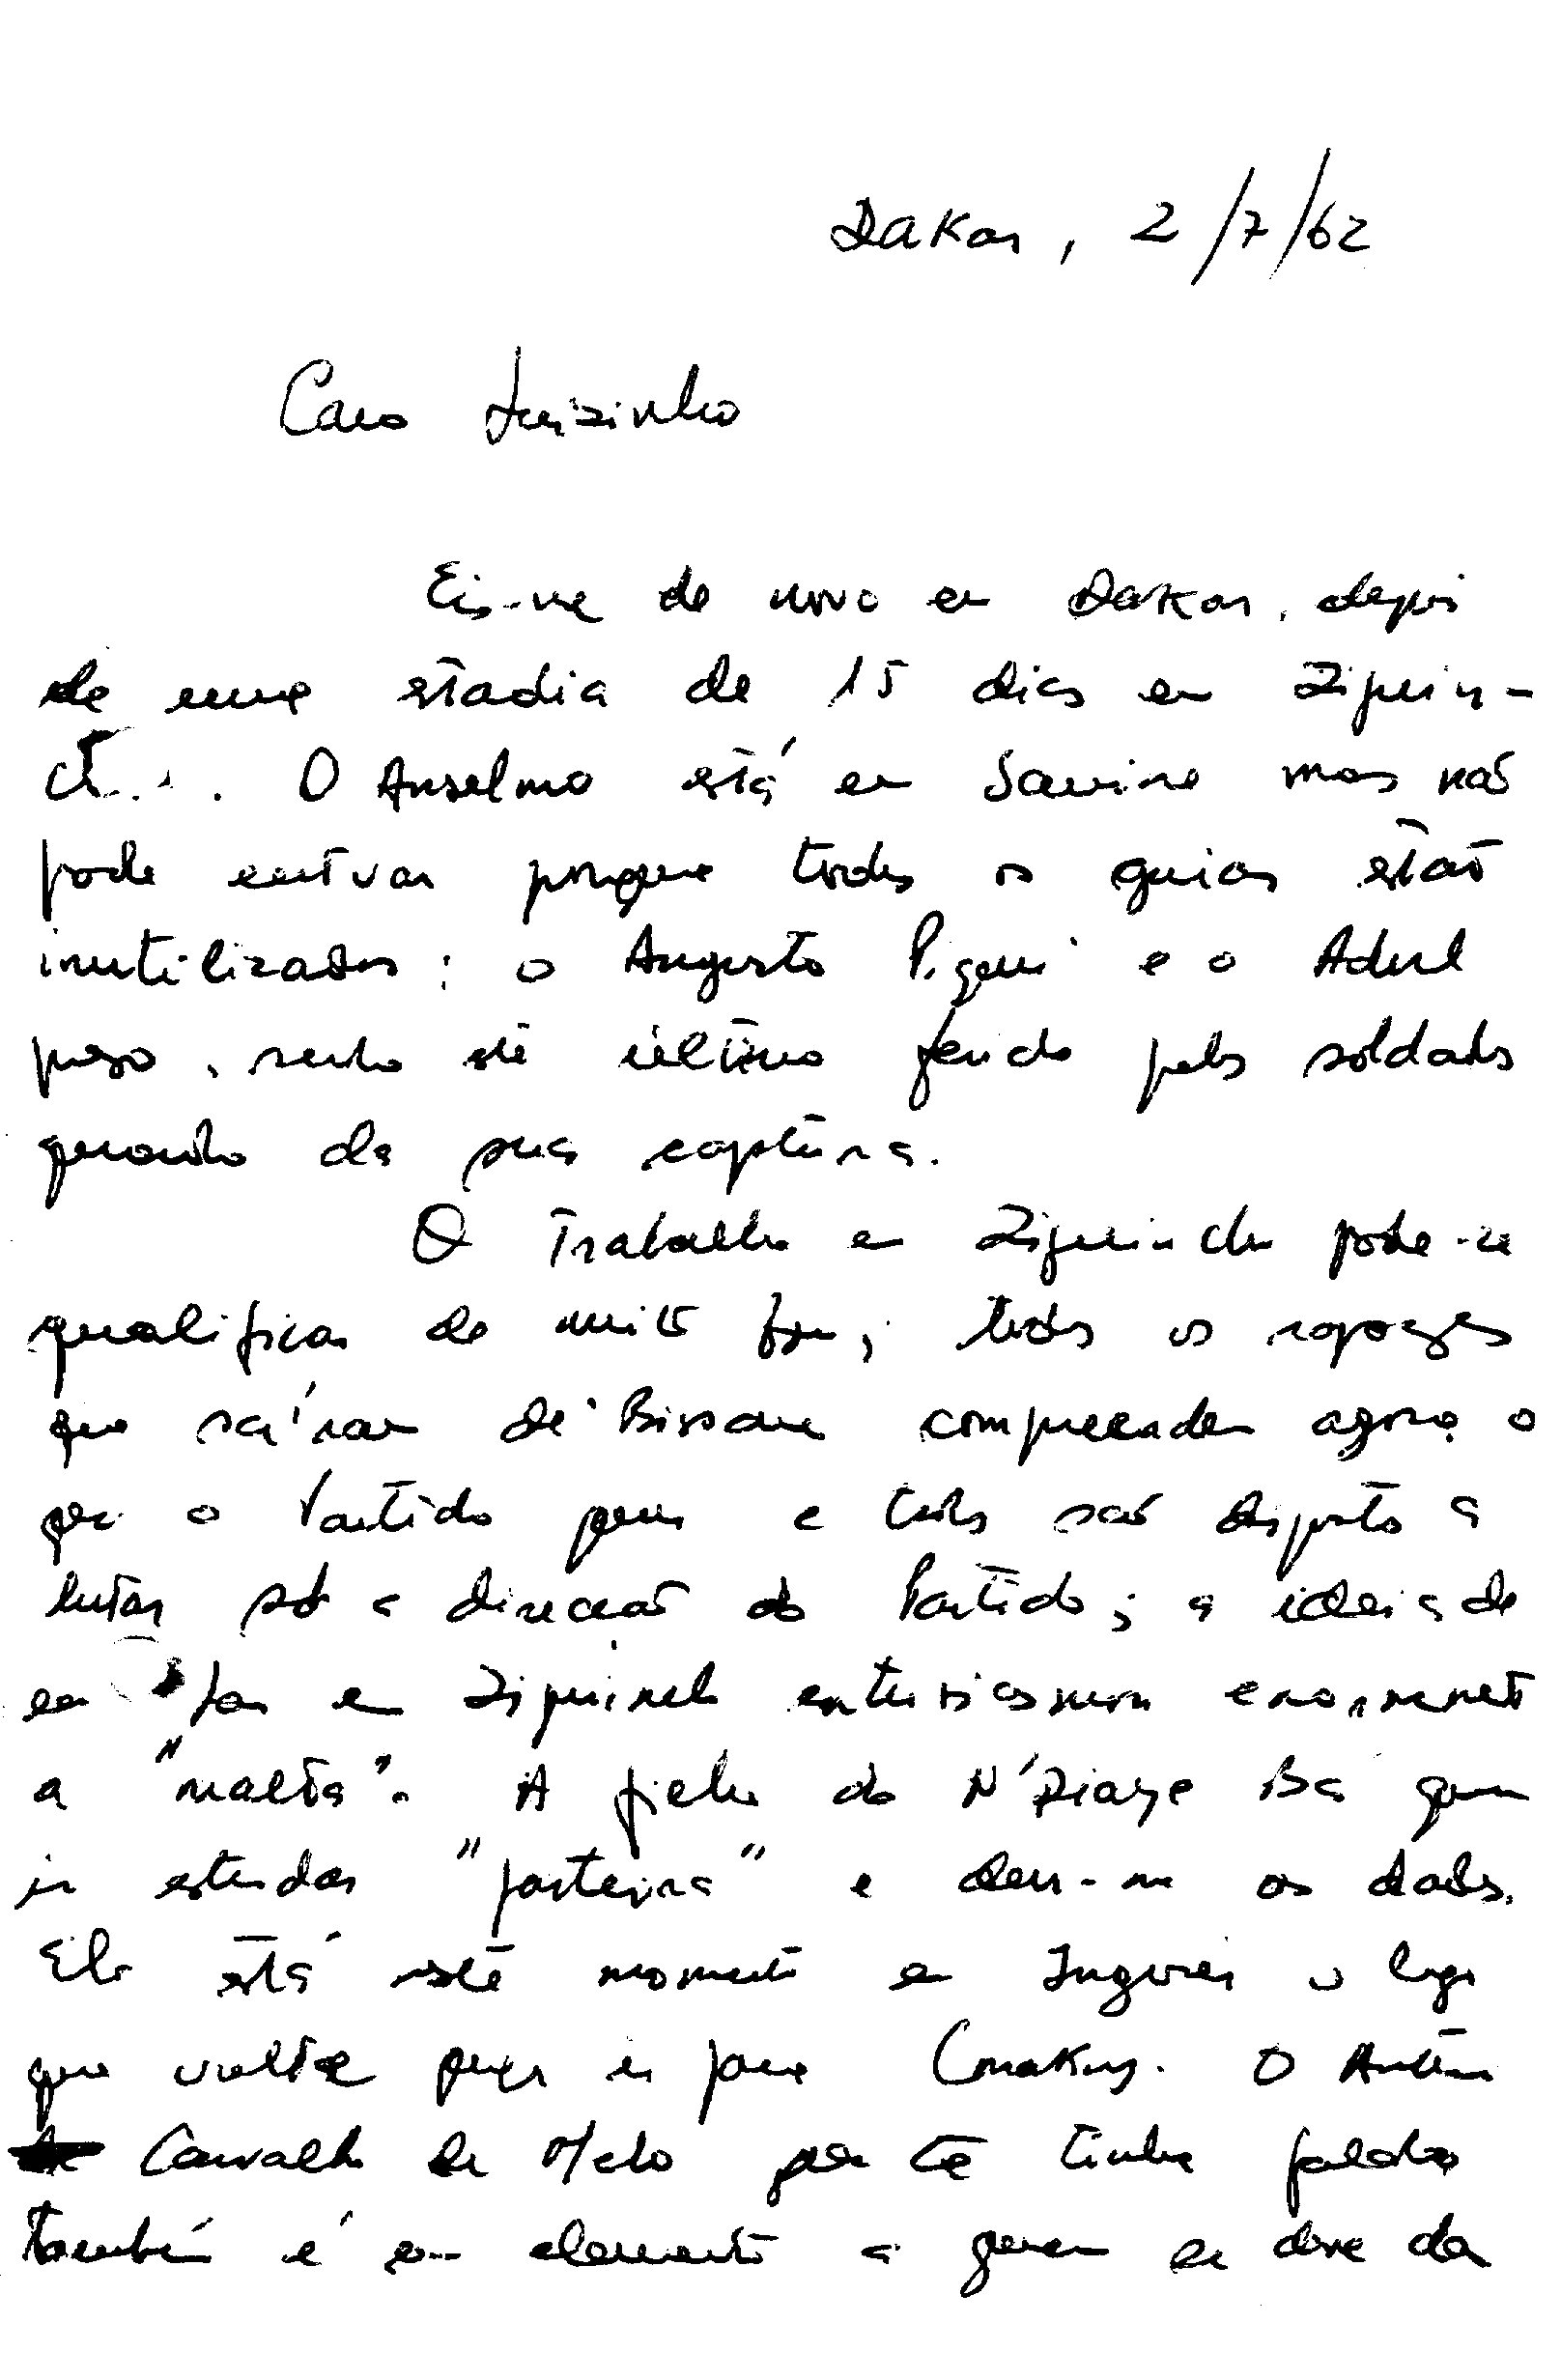 Dakar, 2/7/62
Caro Luizinho
Eis-me de novo em Dakar, depois
de uma estadia de 15 dias em Ziguin-
ch... O Anselmo está em Samine mas não
pode entrar porque todos os guias estão
inutilizados: o Augusto Pigani e o Adul
preso, sendo este último ferido pelos soldados
quando da sua captura.
O trabalho em Ziguinchor pode-se
qualificar de muito bom; todos os rapazes
que saíram de Bissau compreendem agora o
que o Partido quer e todos são dispostos a
lutar sob a direcção do Partido; a ideia de
em Ziguinchor entusiasmou enormemente
a "malta". A filha do N'Diaye Bá quer
ir estudar "parteira" e deu-me os dados.
Ela está neste momento em Ingoré e logo
que volte peça ir para Conakry. O António
Carvalho de Melo que te tinha falado
também é um elemento a quem se deve dar